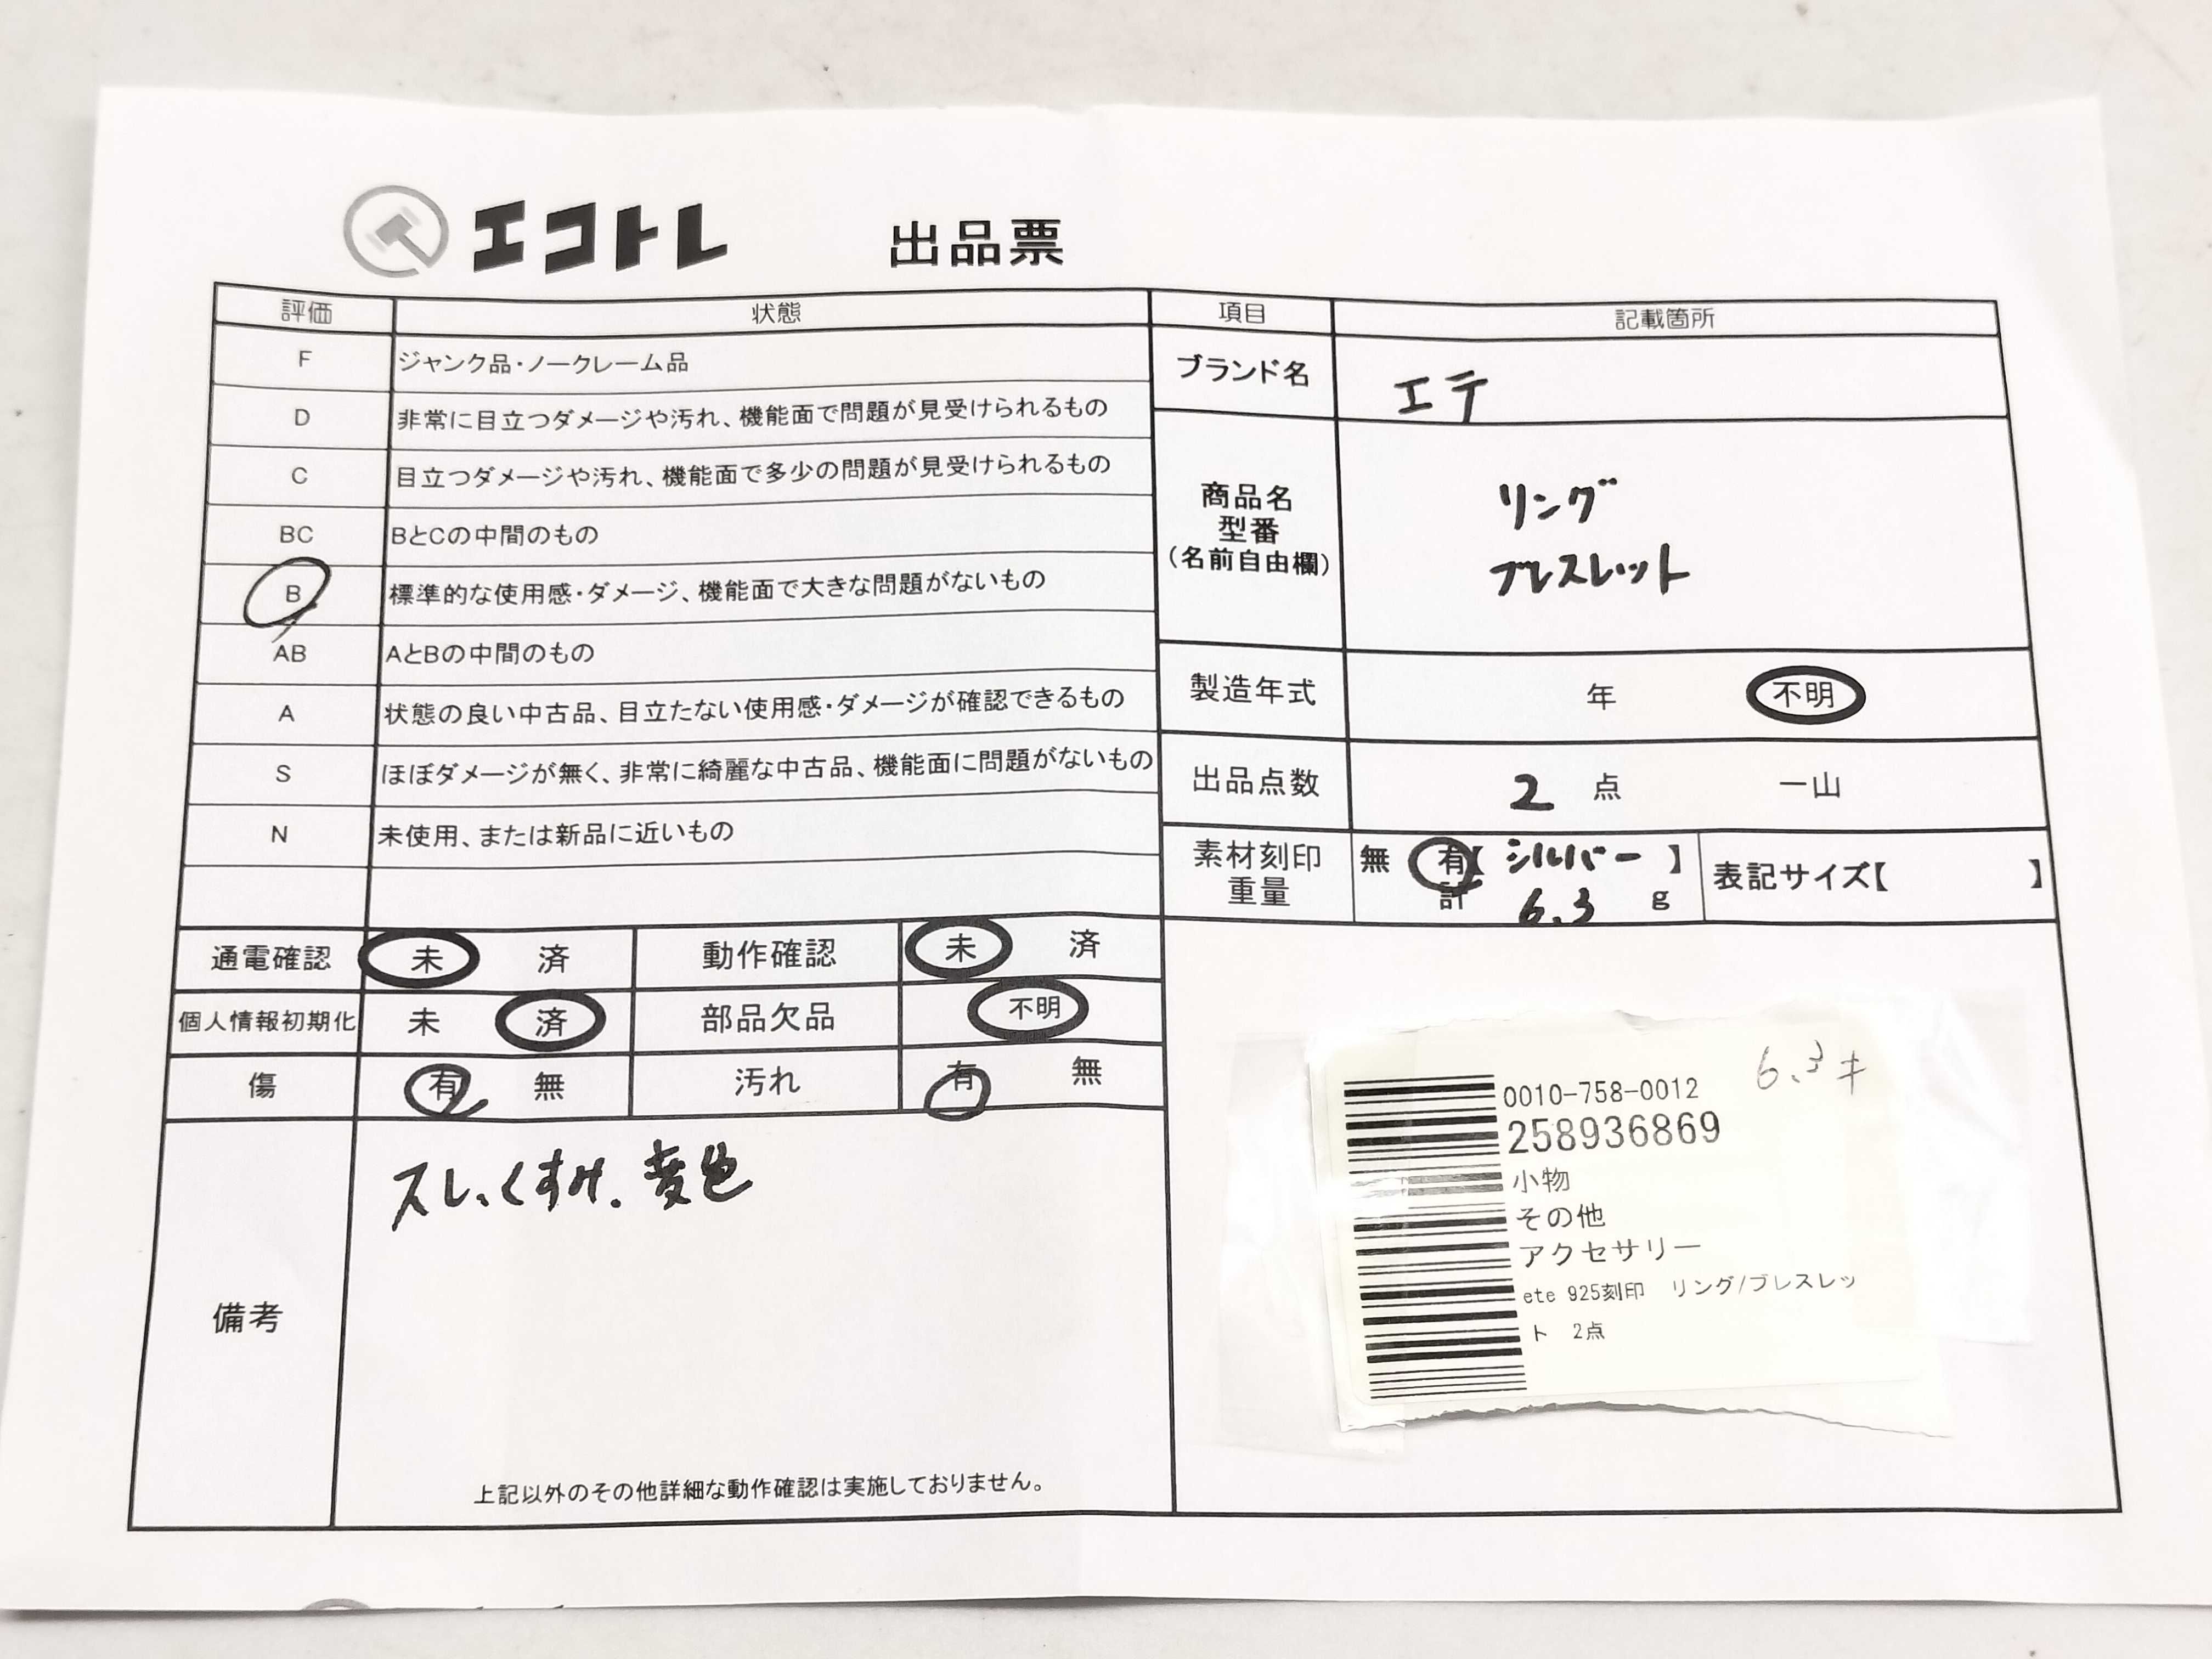 エコトレ 出品票
評価 状態
F ジャンク品・ノークレーム品
D 非常に目立つダメージや汚れ、機能面で問題が見受けられるもの
C 目立つダメージや汚れ、機能面で多少の問題が見受けられるもの
BC BとCの中間のもの
B 標準的な使用感・ダメージ、機能面で大きな問題がないもの
AB AとBの中間のもの
A 状態の良い中古品、目立たない使用感・ダメージが確認できるもの
S ほぼダメージが無く、非常に綺麗な中古品、機能面に問題がないもの
N 未使用、または新品に近いもの
通電確認 未 済 動作確認 未 済
個人情報初期化 未 済 部品欠品 不明
傷 有 無 汚れ 有 無
備考
スレ、くすみ、変色
上記以外のその他詳細な動作確認は実施しておりません。
項目 記載箇所
ブランド名 エテ
商品名
型番
(名前自由欄)
リング
ブレスレット
製造年式 年 不明
出品点数 2 点 一山
素材刻印
重量
無 有【 シルバー 】
計 6.3 g
表記サイズ【 】
6.3キ
0010-758-0012
258936869
小物
その他
アクセサリー
ete 925刻印 リング/ブレスレッ
ト 2点